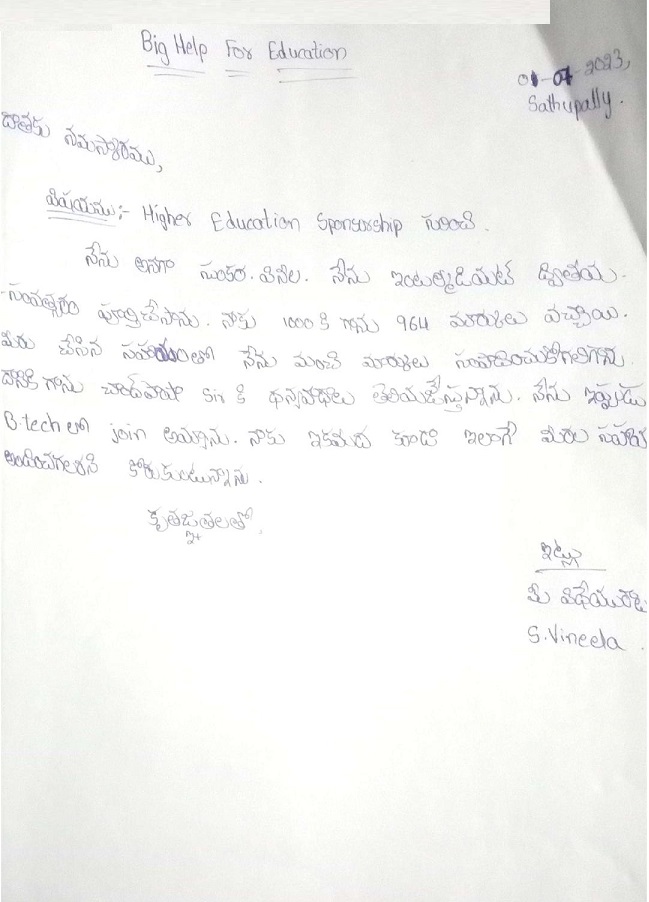 Big Help For Education
01-07-2023,
Sathupally.
దాతకు నమస్కారము,
విషయము :- Higher Education Sponsorship గురించి.
నేను అనగా సుంకర. వినీల. నేను ఇంటర్మీడియట్ ద్వితీయ.
సంవత్సరం పూర్తిచేసాను. నాకు 1000 కి గాను 964 మార్కులు వచ్చాయి.
మీరు చేసిన సహాయంతో నేను మంచి మార్కులు సంపాదించుకోగలిగాను.
దానికి గాను చాంద్‌పాషా Sir కి ధన్యవాదాలు తెలియజేస్తున్నాను. నేను ఇప్పుడు
B.tech లో join అయ్యాను. నాకు ఇకమీద కూడా ఇలాగే మీరు సహాయ
అందించగలరని కోరుకుంటున్నాను.
కృతజ్ఞతలతో.
ఇట్లు
మీ విధేయురాలు
S.Vineela.